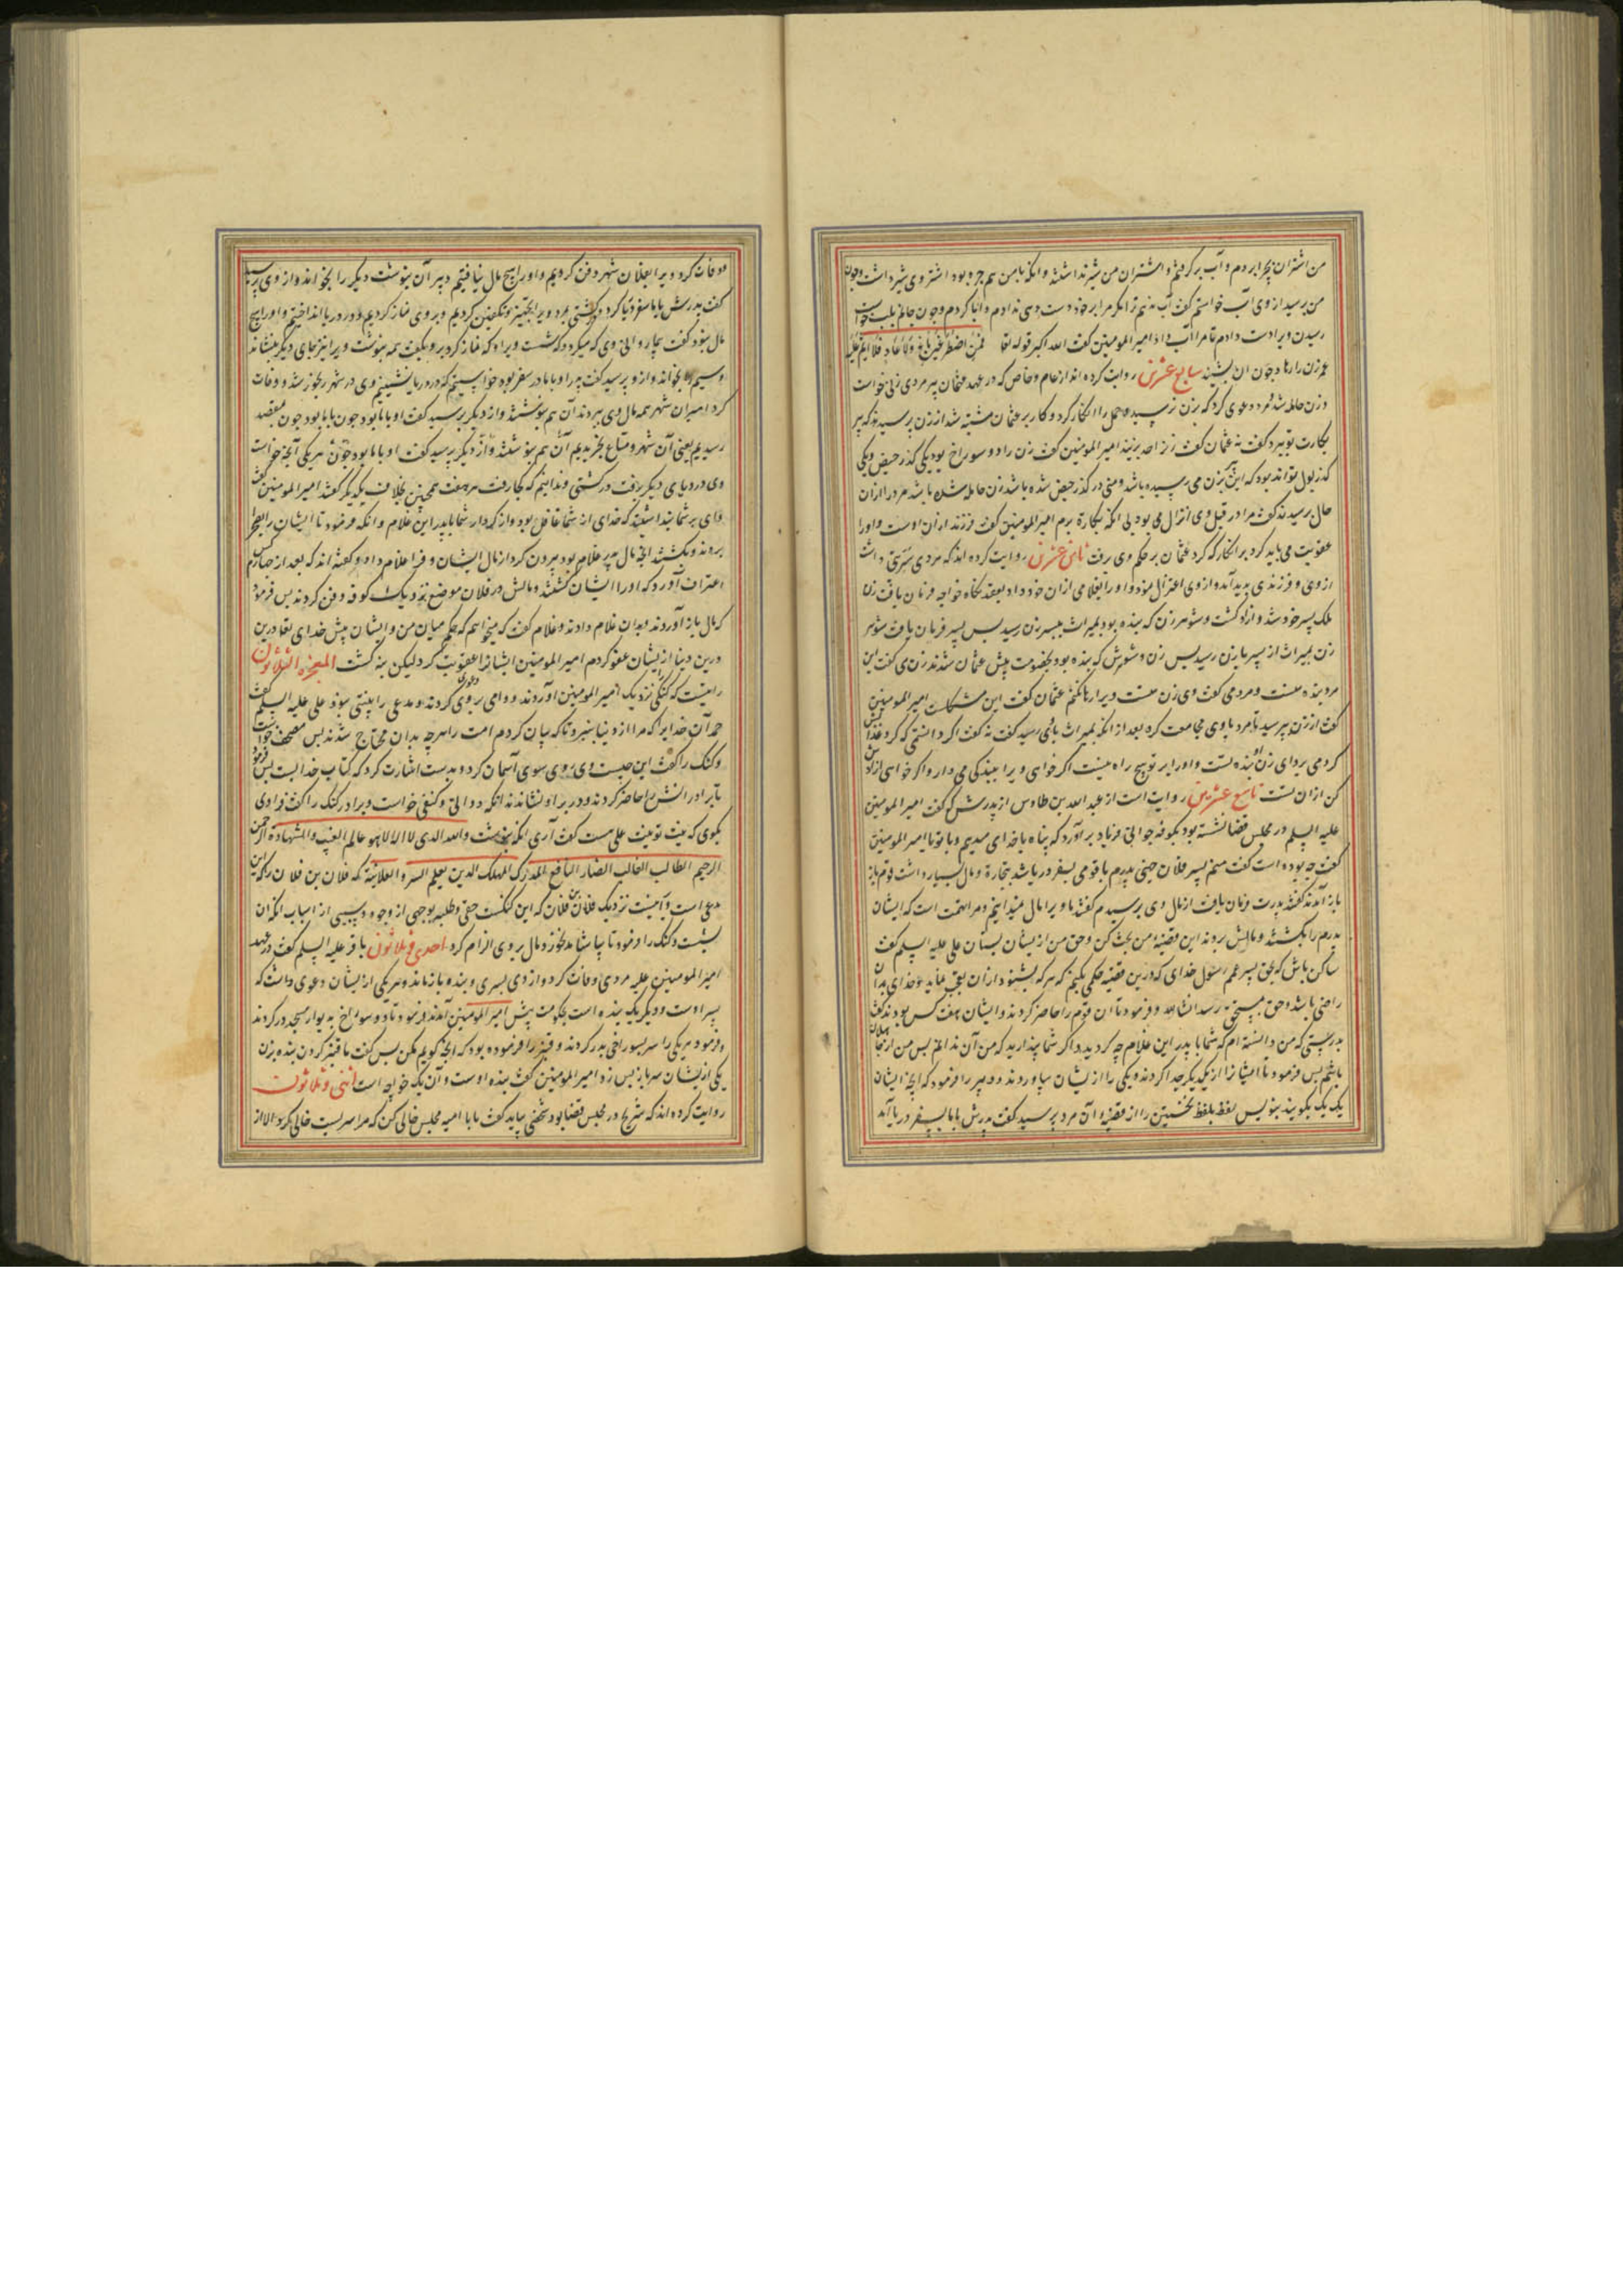 من اشتران بچرا بردم و آب برکرفتم و اشتران من شیر نداشتند و انکه بامن هم جره بود اشتر وی شیر داشت وجون
من برسید از وی آب خواستم کفت آب ندهم ترا مکر مرا بر خود دست دهی ندادم و ابا کردم وجون جانم بلب خواست
رسیدن ویرا دست دادم تا مرا آب داد امیر المومنین کفت الله اکبر قوله تعا فمن اضطر غیر باغ ولا عاد فلا اثم علیه
عمر زن را رها کرد جون ان بشنید سابع عشرین روایت کرده اند از عام وخاص که در عهد عثمان پیر مردی زنی خواست
و زن حامله شد مرد دعوی کرد که بزن نرسیده ام حمل را انکار کرد و کار بر عثمان مشتبه شد از زن برسیدند که پیر
بکارت تو ببرد کفت نه عثمان کفت زن را حد بزنید امیر المومنین کفت زن را دو سوراخ بود یکی کذر حیض ویکی
کذر بول تواند بود که این پیر بزن می رسیده باشد ومنی در کذر حیض شده باشد زن حامله شده باشد مرد را ازان
حال برسیدند کفت مرا در قبل وی انزال می بود بی انکه بکارة برم امیر المومنین کفت فرزند ازان اوست واورا
عقوبت می باید کرد بر انکار که کرد عثمان بر حکم وی برفت ثامن عشرین روایت کرده اند که مردی سریتی داشت
از وی و فرزندی بدید آمد و از وی اعتزال نمود و او را بغلامی ازان خود داد بعقد نکاح خواجه فرمان یافت زن
ملک پسر خود شد و ازاد کشت و شوهر زن که بنده بود بمیراث ببسر زن رسید بس پسر فرمان یافت شوهر
زن بمیراث از پسر با زن رسید بس زن و شوهرش که بنده بود بخصومت پیش عثمان شدند زن می کفت این
مرد بنده منست و مرد می کفت وی زن منست ویرا رها نکنم عثمان کفت این مشکلست امیر المومنین
کفت از زن بپرسید تا مرد با وی مجامعت کرد بعد از انکه بمیراث بانی رسید کفت نه کفت اکر دانستمی که کرد
کردمی برو ای زن او بنده تست و اورا بر تو هیچ راه نیست اکر خواهی ویرا ببندکی می دار و اکر خواهی ازادش
کن ازان تست تاسع عشرین روایت است از عبد الله بن طاوس از بدرش که کفت امیر المومنین
علیه السلم در مجلس قضا نشسته بود بکوفه جوانی فریاد براورد که پناه با خدای میدهم و با تو یا امیر المومنین
کفت چه بوده است کفت منم پسر فلان جنی پدرم با قومی بسفر دریا شد بتجارة ومال بسیار داشت قوم باز
باز آمدند کفتند پدرت فرمان یافت از مال وی برسیدم کفتند ما ویرا مال نمیدانیم ومرا تهمت است که ایشان
پدرم را بکشتند ومالش بردند این قضیه من بحث کن وحق من از یشان بستان علی علیه السلم کفت
ساکن باش که بحق پسر عم رسول خدای که درین قضیه حکمی بکنم که هر که بشنود ازان بعجب بماند و خدای بدان
راضی باشد و حق بمستحق رسد انشا الله و فرمود تا ان قوم را حاضر کردند و ایشان هفت کس بودند کفت
بدرستی که من دانسته ام که شما با بدر این غلام چه کردید و اکر شما پندارید که من آن ندانم بس من از جاهلان
باشم بس فرمود تا ایشانرا از یکدیکر جدا کردند و یکی را از یشان بیاوردند و دبیر را فرمود که انچه ایشان
یک یک بکویند بنویس لفظ بلفظ نخستین را از قضیه ان مرد برسید کفت بدرش با ما بسفر دریا آمد
و وفات کرد ویرا بفلان شهر دفن کردیم و اورا هیچ مال نیافتیم دبیر آن بنوشت دیکر را بخواند و از وی برسید
کفت بدرش با ما سفر دریا کرد در کشتی مرد ویرا تجهیز و تکفین کردیم و بر وی نماز کردیم و در دریا انداختیم و اورا هیچ
مال نبود کفت بیمار والی وی که میکرد و که شست ویرا و که نماز کرد بر و بکفت همه بنوشت ویرا نیز بجای دیکر بنشاند
و سیم را بخواند و از و برسید کفت بدر او با ما در سفر بود
کرد امیران شهر همه مال وی ببردند آن هم بنوشتند و از دیکر برسید کفت او با ما بود جون با ما بود جون بمقصد
رسیدیم یعنی آن شهر و متاع بخریدیم آن هم بنوشتند و از دیکر برسید کفت او با ما بود جون هریکی انچه خواست
وی در دریای دیکر رفت در کشتی و ندانیم که کجا رفت هر هفت همچنین بخلاف یکدیکر کفتند امیر المومنین کفت
وای بر شما پنداشتید که خدای از شما غافل بود و از کردار شما با پدر این غلام و انکه فرمود تا ایشان را بصحرا
بردند و بکشتند انچه مال پدر غلام بود بیرون کرد از مال ایشان و فرا غلام داد و کفته اند که بعد از حبس حکم
اعتراف آورد که اورا ایشان کشتند و مالش در فلان موضع نزدیک کوفه دفن کردند بس فرمود
که مال باز آوردند و بدان غلام دادند و غلام کفت که میخواهم که حکم میان من و ایشان پیش خدای بقا درین
درین دنیا از یشان عفو کردم امیر المومنین ایشانرا عقوبت کرد لیکن بنه کشت المعجزة الثلاثون
راینست که کنکی نزدیک امیر المومنین آوردند و وامی بر وی دعوی کردند و مدعی را بینتی نبود علی علیه السلم کفت
حمد آن خدایرا که مرا از دنیا نبرد تا که بیان کردم امت را هر چه بدان محتاج شدند بس مصحف خواست
و کنک را کفت این چیست وی روی سوی آسمان کرد و بدست اشارت کرد که کتاب خداست بس فرمود
تا برادر انش را حاضر کردند و در بر او نشاندند انکه دواتی و کتفی خواست و برادر کنک را کفت فرادی
بکوی که نیت تو نیت علی هست کفت آری انکه بنوشت والله الذی لا اله الا هو عالم الغیب والشهادة الرحمن
الرحیم الطالب الغالب الضار النافع المدرک المهلک الذی یعلم السر و العلانیة که فلان بن فلان را که این
مدعی است و آینست نزدیک فلان بن فلان که این کنکست حقی و طلبه بوجهی از وجوه و سببی از اسباب انکه ان
بشست و کنک را فرمود تا بیاشامد نخورد مال بر وی الزام کرد احدی و ثلاثون باقر علیه السلم کفت در عهد
امیر المومنین علیه مردی وفات کرد و از وی بسری و بنده باز ماند و هریکی از یشان دعوی داشت که
پسر اوست و دیکر یک بنده است بحکومت پیش امیر المومنین آمدند فرمود تا دو سوراخ به دیوار مسجد در کردند
و فرمود هریکی را سر بسوراخی بدر کردند و قنبر را فرموده بود که انچه کویم مکن بس کفت یا قنبر کردن بنده بزن
یکی از یشان سر باز بس زد امیر المومنین کفت بنده اوست و آن یک خواجه است اثنی و ثلاثون
روایت کرده اند که شریح در مجلس قضا بود شخصی بیامد کفت یا با امیه مجلس خالی کن که مرا سریست خالی کرد الا از